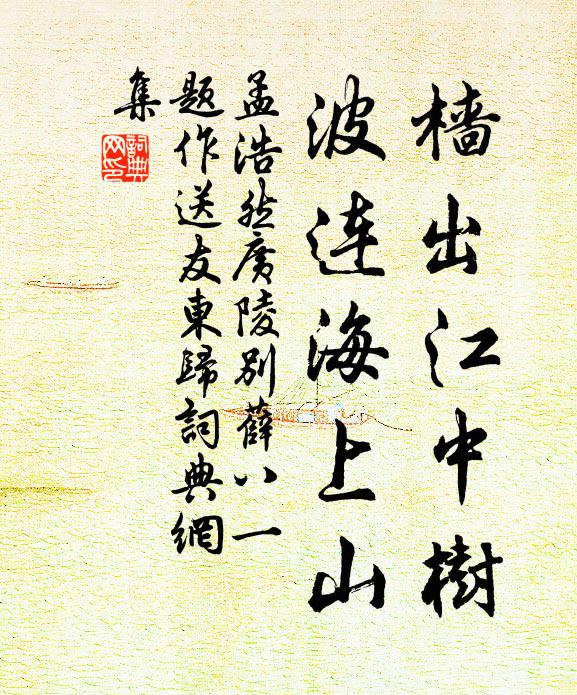 檣出江中樹
波连海上山
孟浩然廣陵別薛八一
题作送友東歸詞典網
集
詞典
网印